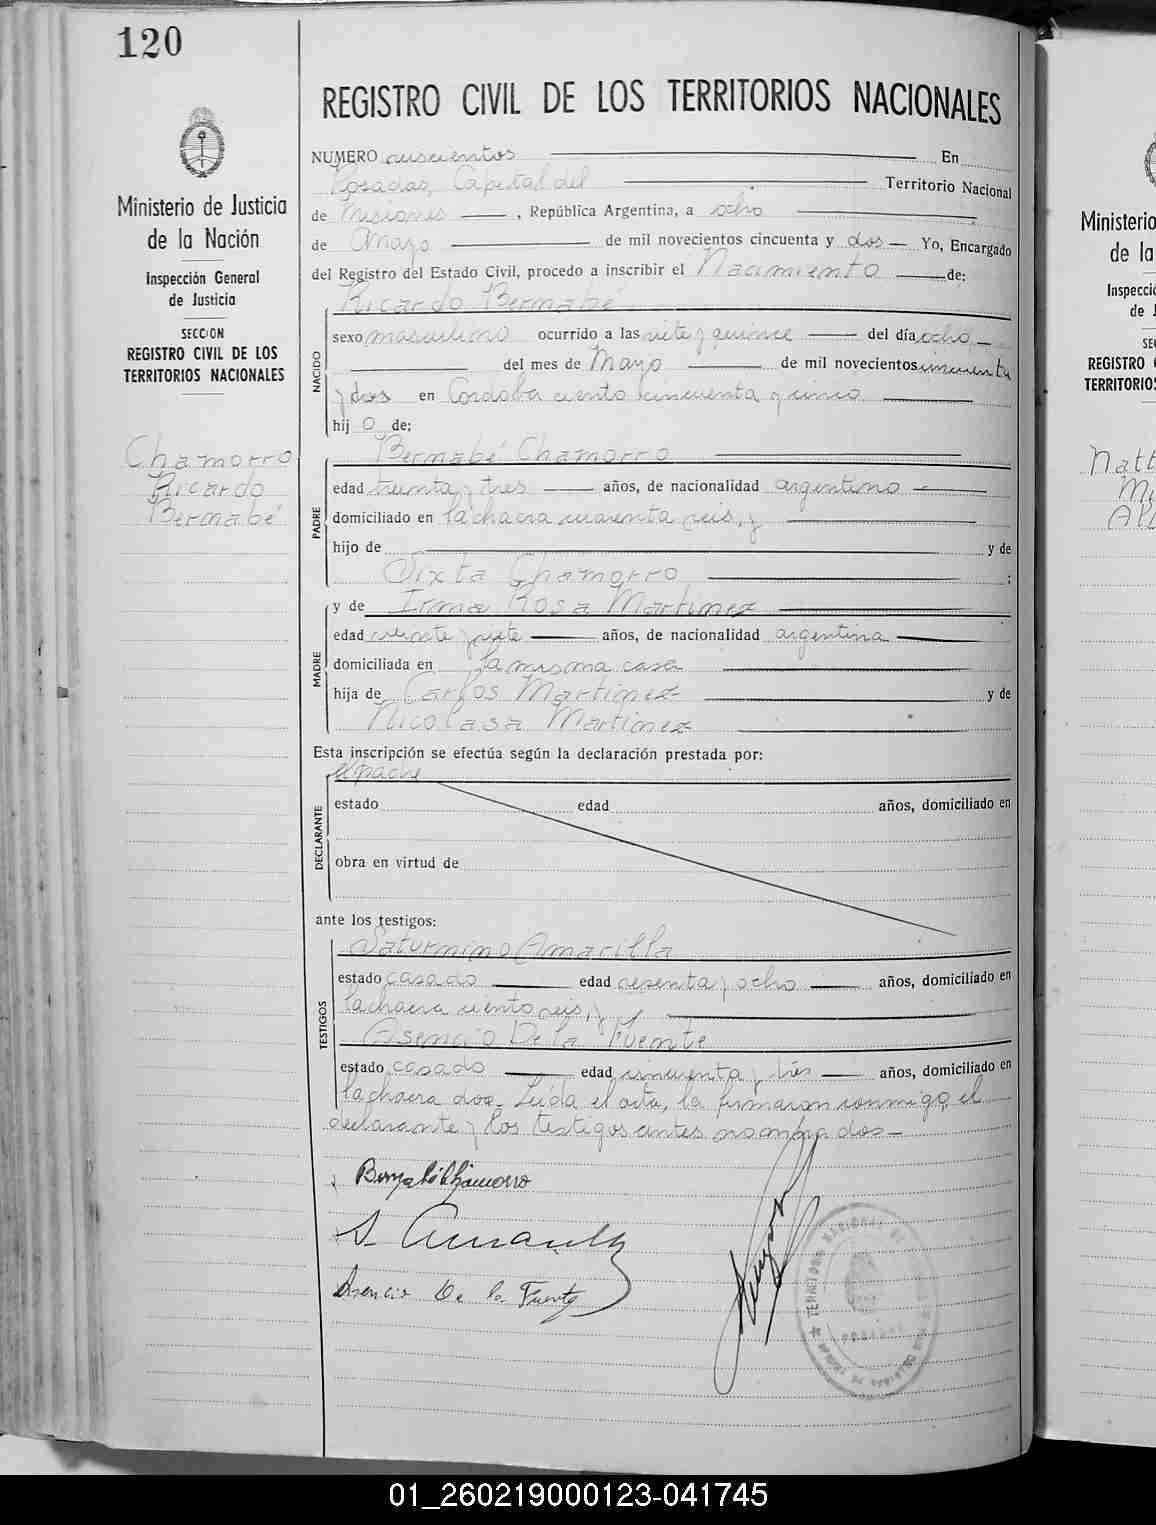 120
Ministerio de Justicia
de la Nación
Inspección General
de Justicia
SECCION
REGISTRO CIVIL DE LOS
TERRITORIOS NACIONALES
Chamorro
Ricardo
Bernabé
REGISTRO CIVIL DE LOS TERRITORIOS NACIONALES
NUMERO En
Posadas, Capital del Territorio Nacional
de Misiones, República Argentina, a ocho
de Mayo de mil novecientos cincuenta y dos Yo, Encargado
del Registro del Estado Civil, procedo a inscribir el Nacimiento de:
Ricardo Bernabé
NACIDO
sexo masculino ocurrido a las siete y quince del día ocho
del mes de Mayo de mil novecientos cincuenta
y dos en Córdoba ciento cincuenta y cinco
hij o de:
Bernabé Chamorro
PADRE
edad treinta y tres años, de nacionalidad argentino
domiciliado en la chacra cuarenta y seis, y
hijo de y de
Sixta Chamorro ;
y de Irma Rosa Martinez
MADRE
edad veinte y siete años, de nacionalidad argentina
domiciliada en la misma casa
hija de Carlos Martinez y de
Nicolasa Martinez
Esta inscripción se efectúa según la declaración prestada por:
el padre
DECLARANTE
estado edad años, domiciliado en
obra en virtud de
ante los testigos:
Saturnino Amarilla
TESTIGOS
estado casado edad sesenta y ocho años, domiciliado en
la chacra ciento seis, y
Asencio De la Fuente
estado casado edad cincuenta y tres años, domiciliado en
la chacra dos. Leida el acta, la firmaron conmigo, el
declarante y los testigos antes nombrados
Bernabé Chamorro
S. Amarilla
Asencio De la Fuente
Ministerio
de la
Inspecció
de J
SE
REGISTRO C
TERRITORIOS
01_260219000123-041745